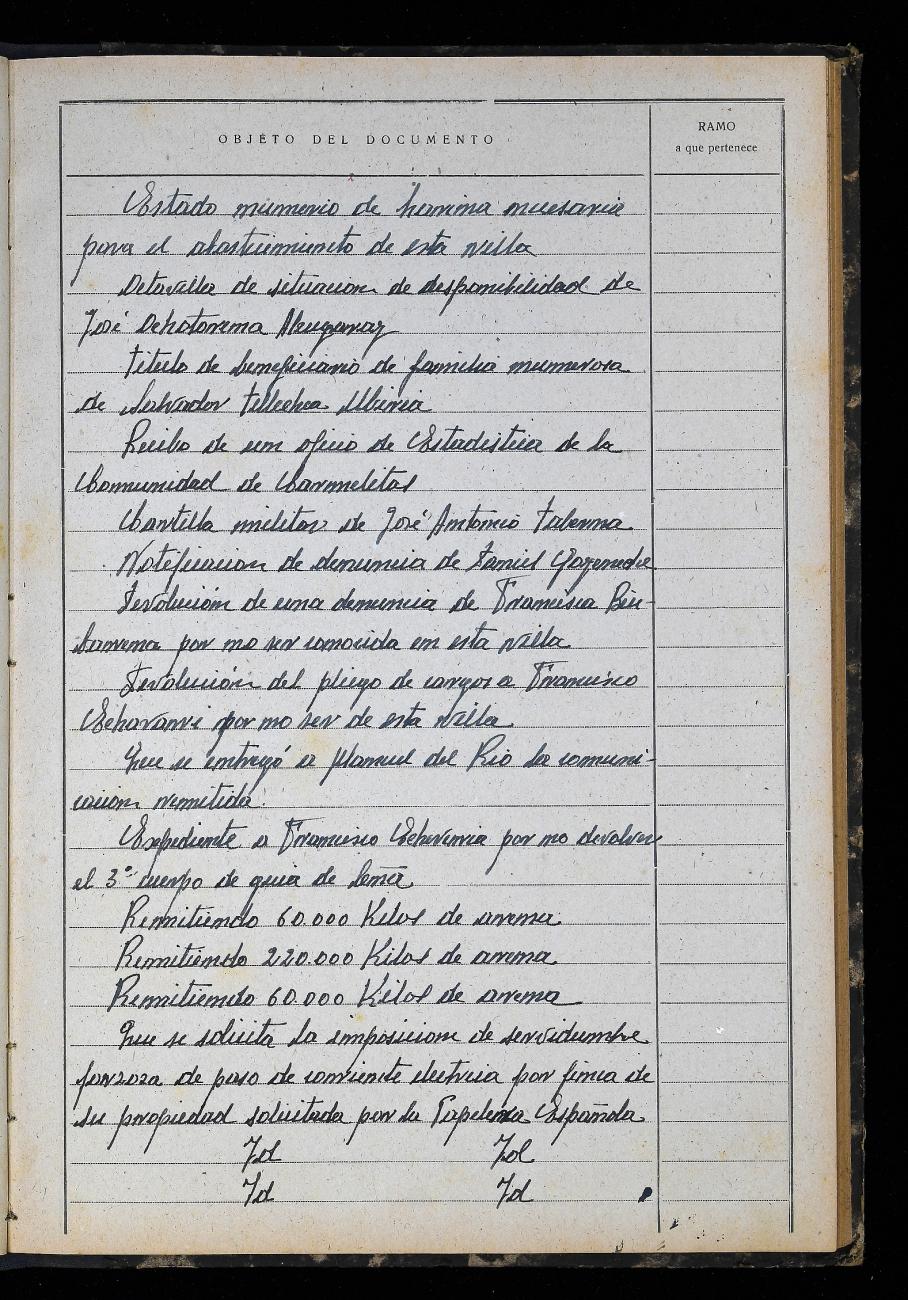 OBJETO DEL DOCUMENTO
RAMO
a que pertenece
Estado numerio de harina necesaria
para el abastecimiento de esta villa
Detaller de situacion de disponibilidad de
José Ochotorena
Titulo de beneficiario de familia numerosa
de Salvador Tellechea
Recibo de un oficio de Estadistica de la
Comunidad de Carmelitas
Cartilla militar de José Antonio Taberna
Notificacion de denuncia de Daniel
Devolución de una denuncia de Francisca
por no ser conocida en esta villa
Devolución del pliego de cargos a Francisco
Echavarri por no ser de esta villa
Que se entregó a Manuel del Rio la comuni-
cación remitida.
Expediente a Francisco Echeverria por no devolver
el 3º cuerpo de guia de leña
Remitiendo 60.000 Kilos de avena
Remitiendo 220.000 Kilos de avena
Remitiendo 60.000 Kilos de avena
Que se solicita la imposicion de servidumbre
forzoza de paso de corriente electrica por finca de
su propiedad solicitada por la Papelera Española
Id Id
Id Id